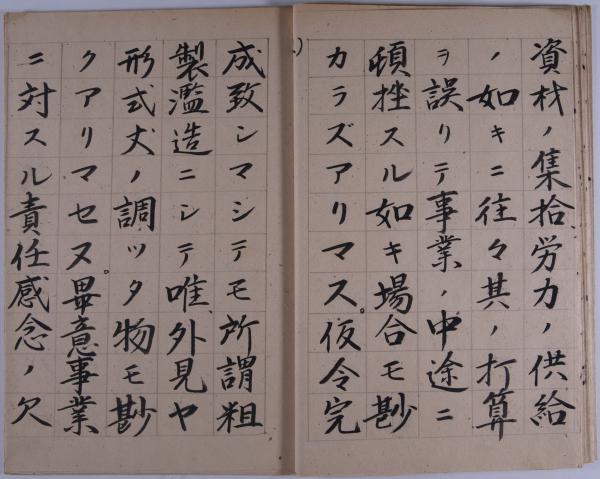 資材ノ集拾労力ノ供給
ノ如キニ往々其ノ打算
ヲ誤リテ事業ノ中途ニ
頓挫スル如キ場合モ尠
カラズアリマス。仮令完
成致シマシテモ所謂粗
製濫造ニシテ唯、外見ヤ
形式丈ノ調ッタ物モ尠
クアリマセヌ。畢意事業
ニ対スル責任感念ノ欠